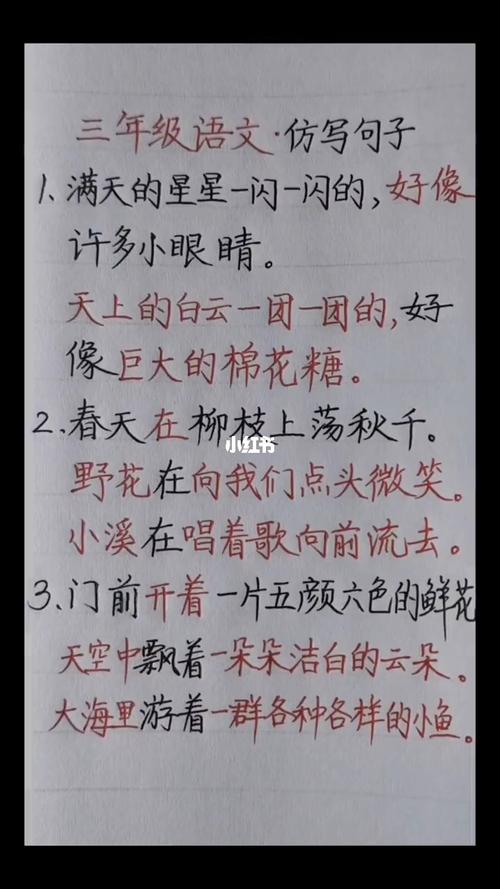 三年级语文·仿写句子
1.满天的星星一闪一闪的,好像
许多小眼睛。
天上的白云一团一团的,好
像巨大的棉花糖。
2.春天在柳枝上荡秋千。
小红书
野花在向我们点头微笑。
小溪在唱着歌向前流去。
3.门前开着一片五颜六色的鲜花
天空中飘着一朵朵洁白的云朵。
大海里游着一群各种各样的小鱼。